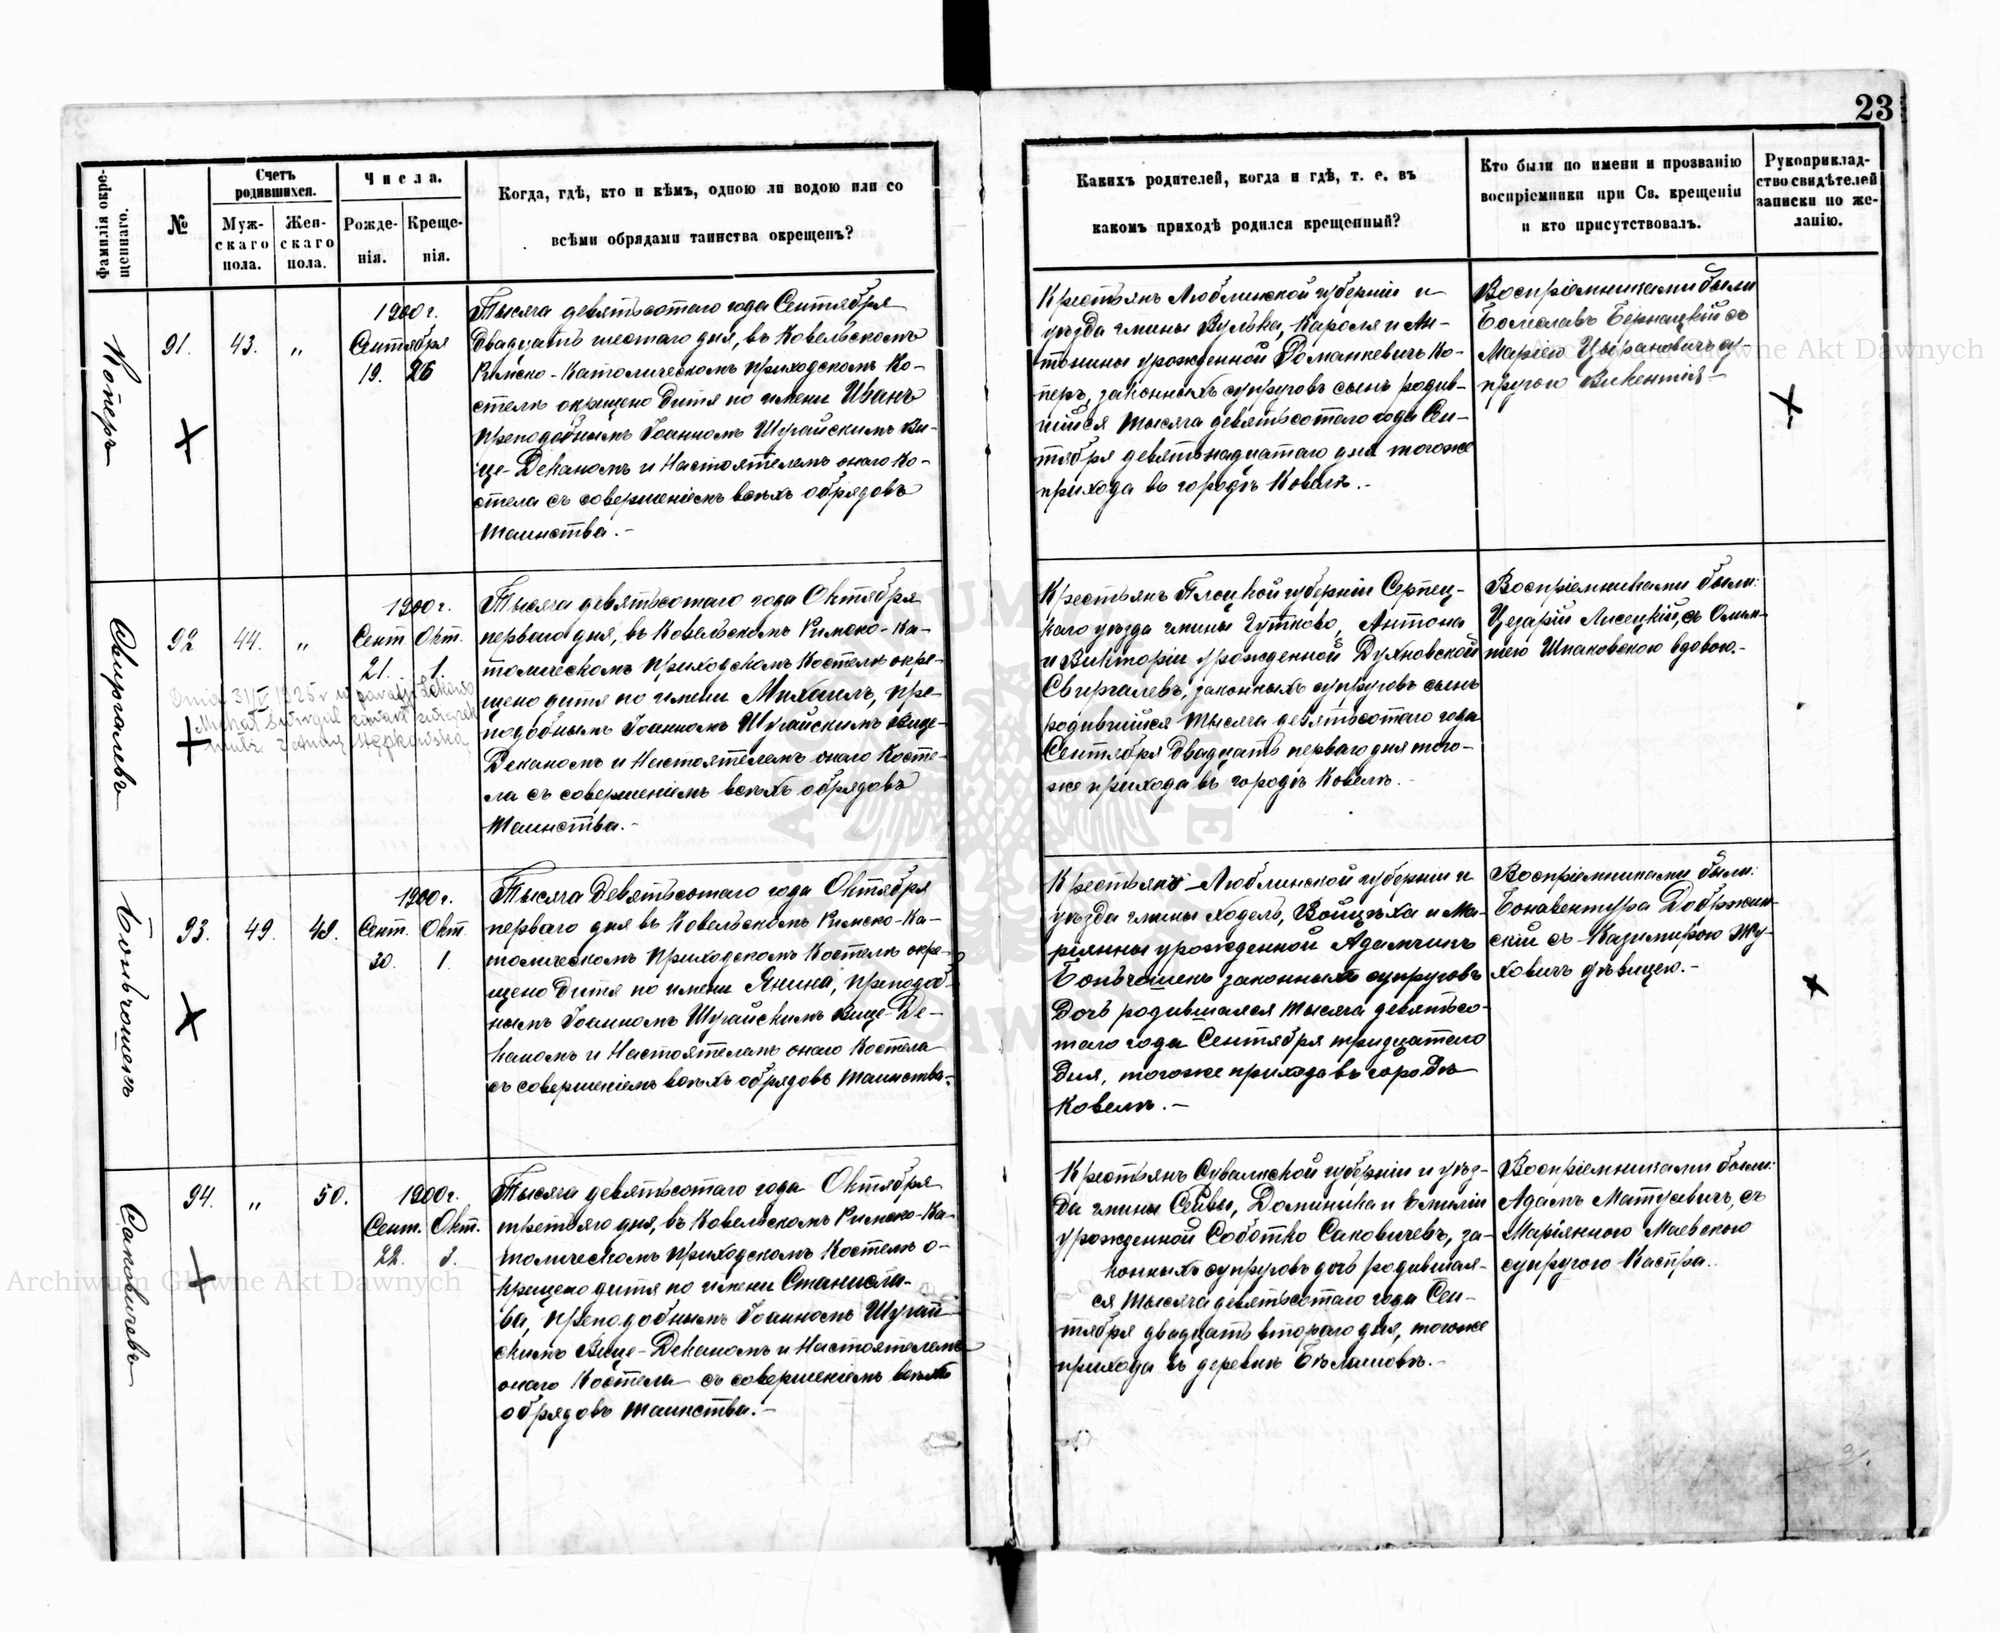 23
Фамилія окре-
щеннаго.
№
Счетъ
родившихся.
Муж-
скаго
пола.
Жен-
скаго
пола.
Числа.
Рожде-
нія.
Креще-
нія.
Когда, гдѣ, кто и кѣмъ, одною ли водою или со
всѣми обрядами таинства окрещенъ?
Какихъ родителей, когда и гдѣ, т. е. въ
какомъ приходѣ родился крещенный?
Кто были по имени и прозванію
воспріемники при Св. крещеніи
и кто присутствовалъ.
Рукоприклад-
ство свидѣтелей
записки по же-
ланію.
Коперъ
91.
43.
"
1900 г.
Сентября
19. 26
Тысяча девятьсотаго года Сентября
двадцать шестаго дня, въ Ковельскомъ
Римско-Католическомъ приходскомъ Ко-
стелѣ окрещено дитя по имени Иванъ
преподобнымъ Іоанномъ Шугайскимъ Ви-
це-Деканомъ и Настоятелемъ онаго Ко-
стела съ совершеніемъ всѣхъ обрядовъ
таинства.-
Крестьянъ Люблинской губерніи и
уѣзда гмины Вулька, Кароля и Ан-
тонины урожденной Романкевичъ Ко-
перъ, законныхъ супруговъ сынъ родив-
шійся тысяча девятьсотаго года Сен-
тября девятнадцатаго дня тогоже
прихода въ городѣ Ковелѣ.-
Воспріемниками были
Болеславъ Бернацкій съ
Маріею Цырановичъ су-
пругою Викентія-
Свиргалевъ
92
44.
"
1900 г.
Сент Окт.
21. 1.
Тысяча девятьсотаго года Октября
перваго дня, въ Ковельскомъ Римско-Ка-
толическомъ приходскомъ Костелѣ окре-
щено дитя по имени Михаилъ, пре-
подобнымъ Іоанномъ Шугайскимъ Вице-
Деканомъ и Настоятелемъ онаго Косте-
ла съ совершеніемъ всѣхъ обрядовъ
таинства.-
Крестьянъ Плоцкой губерніи Серпец-
каго уѣзда гмины Гутково, Антона
и Викторіи урожденной Духновской
Свиргалевъ, законныхъ супруговъ сынъ
родившійся тысяча девятьсотаго года
Сентября двадцать перваго дня того-
же прихода въ городѣ Ковелѣ.-
Воспріемниками были:
Цезарій Лисецкій, съ Олим-
піею Шпаковскою вдовою.-
Dnia 31/V 1925 r w parafji
Michał Świrgal zawarł związek
małż. z Stępkowską
Боньчошекъ
93.
49.
49.
1900 г.
Сент. Окт.
30. 1.
Тысяча девятьсотаго года Октября
перваго дня въ Ковельскомъ Римско-Ка-
толическомъ приходскомъ Костелѣ окре-
щено дитя по имени Янина, преподоб-
нымъ Іоанномъ Шугайскимъ Вице-Де-
каномъ и Настоятелемъ онаго Костела
съ совершеніемъ всѣхъ обрядовъ таинства.
Крестьянъ Люблинской губерніи и
уѣзда гмины Ходель, Войцѣха и Ма-
ріянны урожденной Адамчикъ
Боньчошекъ законныхъ супруговъ
дочь родившаяся тысяча девятьсо-
таго года Сентября тридцатаго
дня, тогоже прихода въ городѣ
Ковелѣ.-
Воспріемниками были:
Бонавентура Добржин-
скій съ Казимирою Жу-
ховичъ дѣвицею.-
Саковичевъ
94.
"
50.
1900 г.
Сент. Окт.
22. 3.
Тысяча девятьсотаго года Октября
третьяго дня, въ Ковельскомъ Римско-Ка-
толическомъ приходскомъ Костелѣ о-
крещено дитя по имени Станисла-
ва, преподобнымъ Іоанномъ Шугай-
скимъ Вице-Деканомъ и Настоятелемъ
онаго Костела съ совершеніемъ всѣхъ
обрядовъ таинства.-
Крестьянъ Сувалкской губерніи и уѣз-
да гмины Сейвы, Доминика и Емиліи
урожденной Соботко Саковичевъ, за-
конныхъ супруговъ дочь родившая-
ся тысяча девятьсотаго года Сен-
тября двадцать втораго дня, тогоже
прихода въ деревнѣ Бѣлашовѣ.-
Воспріемниками были:
Адамъ Матусевичъ, съ
Маріянною Маевскою
супругою Каспра.
Archiwum Główne Akt Dawnych
Archiwum Główne Akt Dawnych